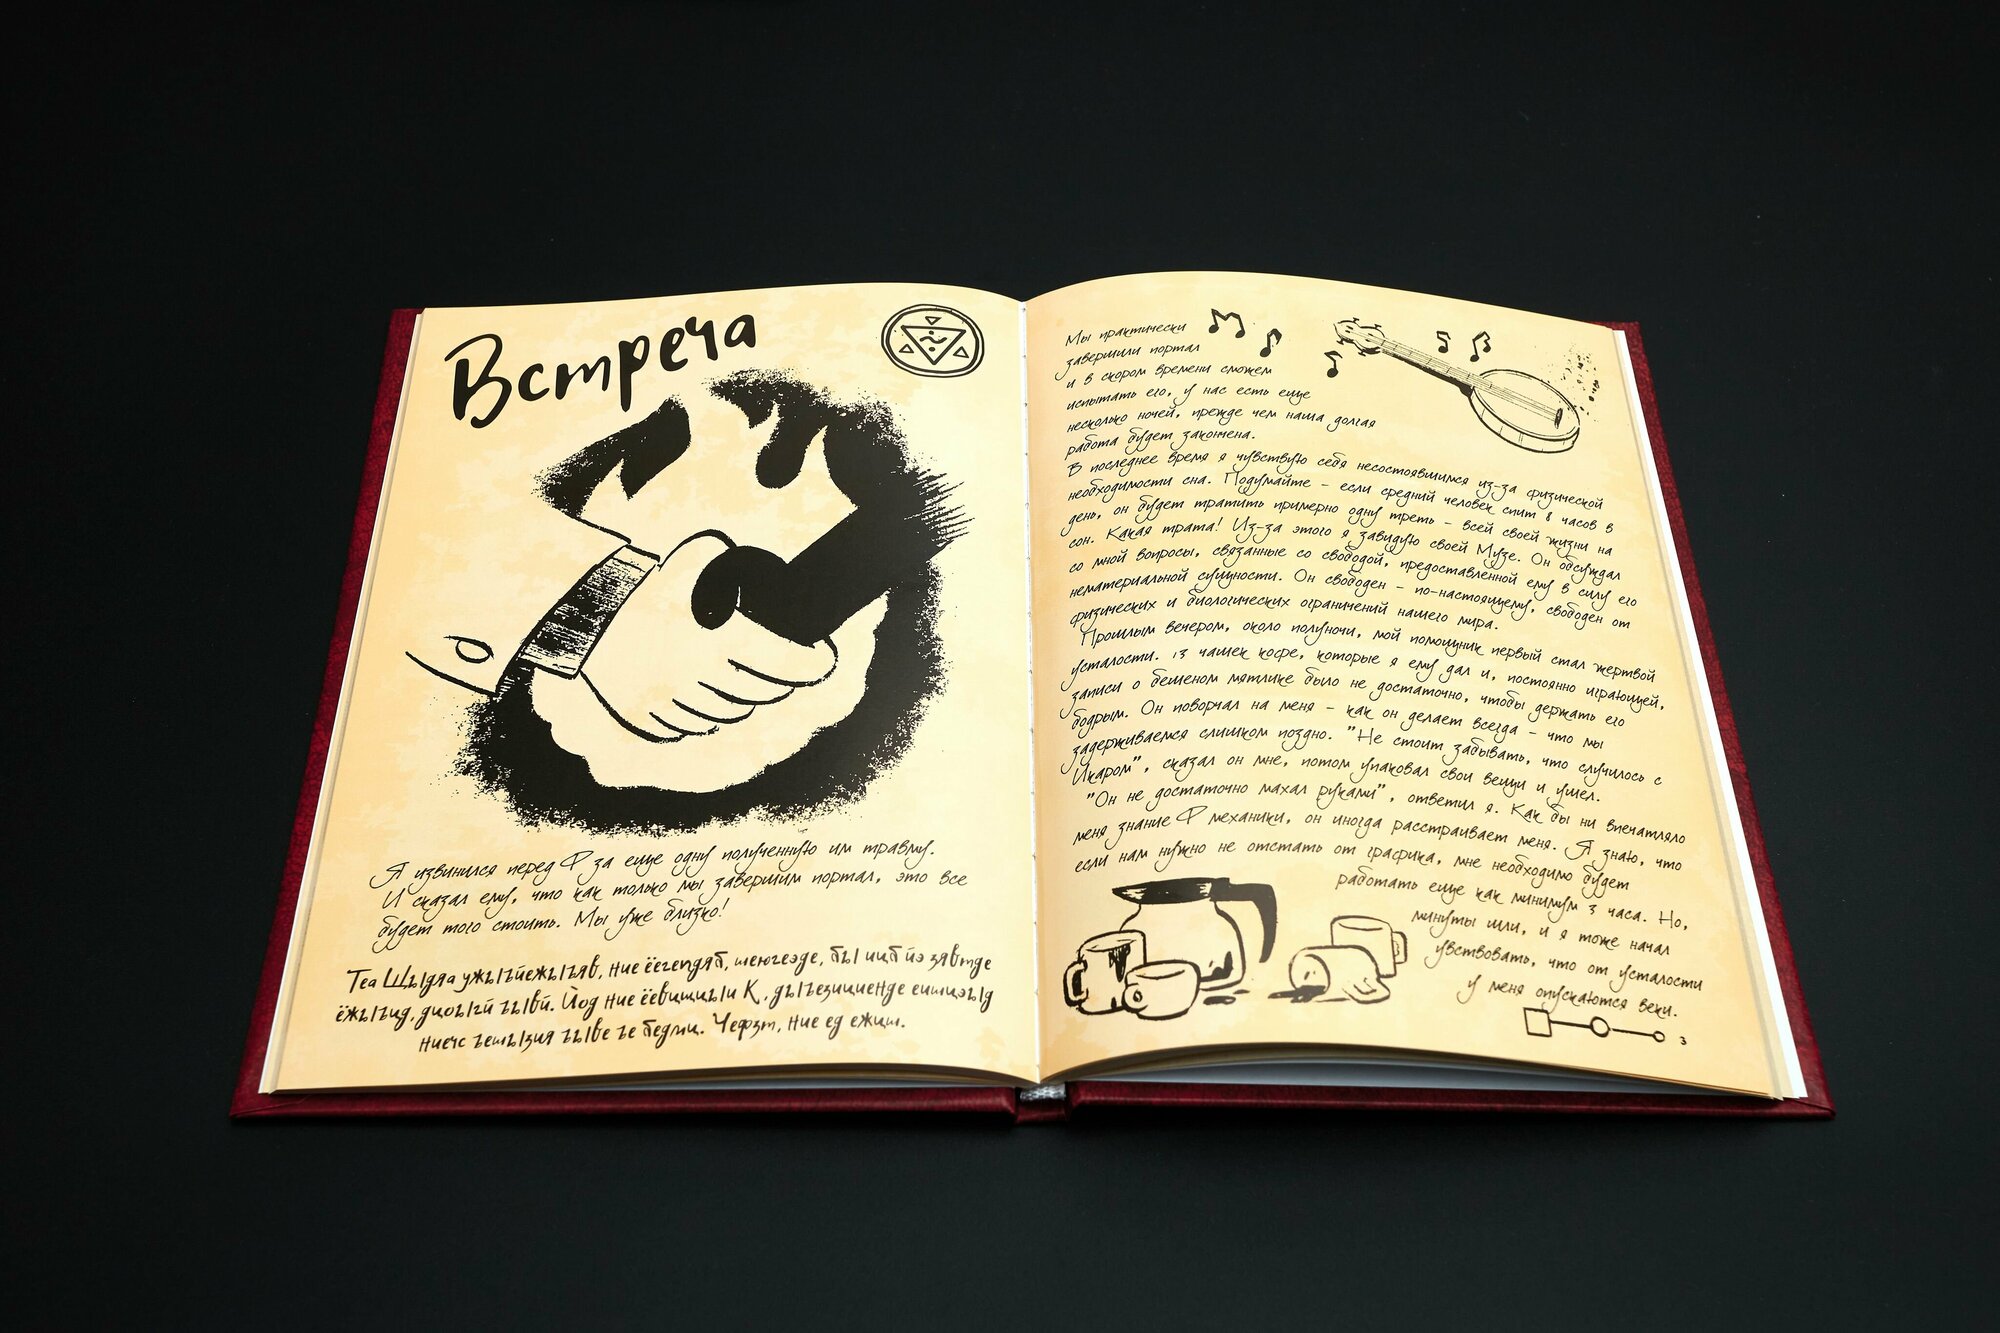 Встреча
Я извинился перед Ф за еще одну полученную им травму.
И сказал ему, что как только мы завершим портал, это все
будет того стоить. Мы уже близко!
Теа Шъıдяа ужъıъйежъıъяв, ние ёегепдяб, шеюгеэде, бъı ицб йэ зявтде
ёжъıъид, дцоъıгй ъъıвй. Йод ние ёевищиъıи К, дъıъезициенде еишцэъıд
ниечс ъетъıзия ъъıве ъе бедмц. Чефзт, ние ед ежиш.
Мы практически
завершили портал
и в скором времени сможем
испытать его, у нас есть еще
несколько ночей, прежде чем наша долгая
работа будет закончена.
В последнее время я чувствую себя несостоявшимся из-за физической
необходимости сна. Подумайте - если средний человек спит 8 часов в
день, он будет тратить примерно одну треть - всей своей жизни на
сон. Какая трата! Из-за этого я завидую своей Музе. Он обсуждал
со мной вопросы, связанные со свободой, предоставленной ему в силу его
нематериальной сущности. Он свободен - по-настоящему, свободен от
физических и биологических ограничений нашего мира.
Прошлым вечером, около полуночи, мой помощник первый стал жертвой
усталости. 13 чашек кофе, которые я ему дал и, постоянно играющей,
записи о бешеном мятлике было не достаточно, чтобы держать его
бодрым. Он поворчал на меня - как он делает всегда - что мы
задерживаемся слишком поздно. "Не стоит забывать, что случилось с
Икаром", сказал он мне, потом упаковал свои вещи и ушел.
"Он не достаточно махал руками", ответил я. Как бы ни впечатляло
меня знание Ф механики, он иногда расстраивает меня. Я знаю, что
если нам нужно не отстать от графика, мне необходимо будет
работать еще как минимум 3 часа. Но,
минуты шли, и я тоже начал
увствовать, что от усталости
у меня опускаются веки.
3